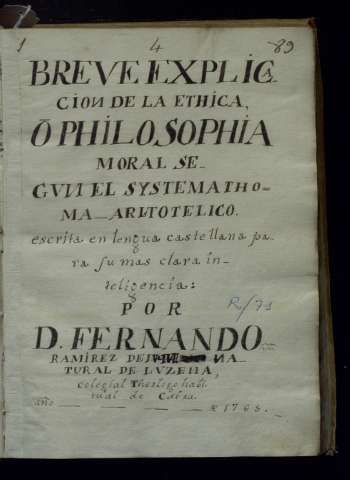 1 4 89
BREVE EXPLICA
CION DE LA ETHICA,
Ó PHILOSOPHIA
MORAL SE-
GUN EL SYSTEMATHO-
MA-ARISTOTELICO.
escrita en lengua castellana pa-
ra su mas clara in-
teligencia:
POR
R/71
D. FERNANDO
RAMIREZ DE NA-
TURAL DE LUZENA,
Colegial Theologo habi-
tual de Cabra.
año 1768.